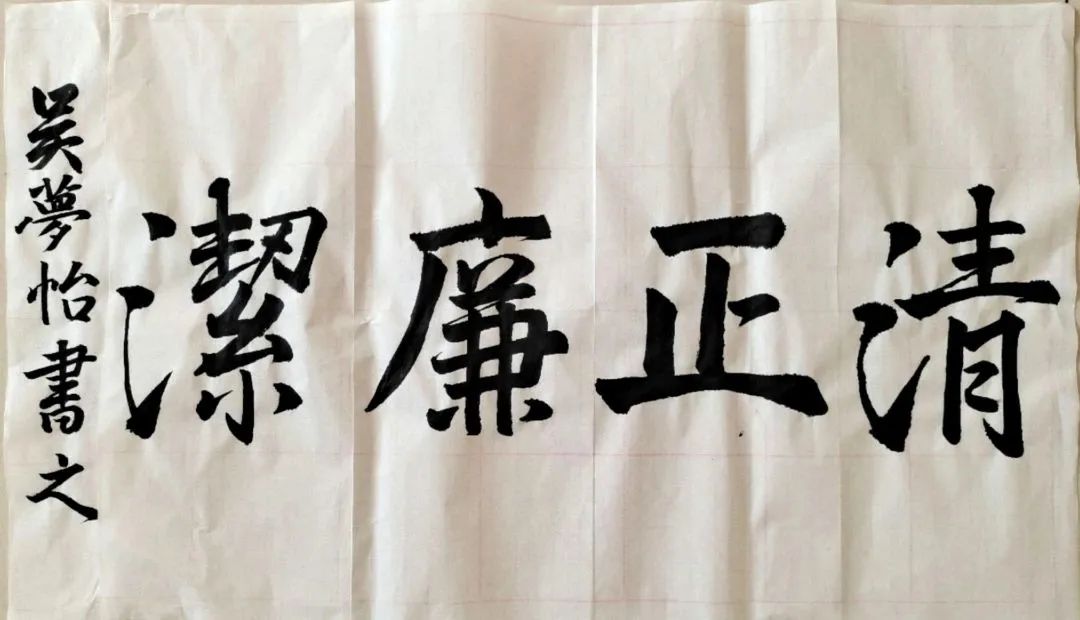 清正廉潔
吴夢怡書之